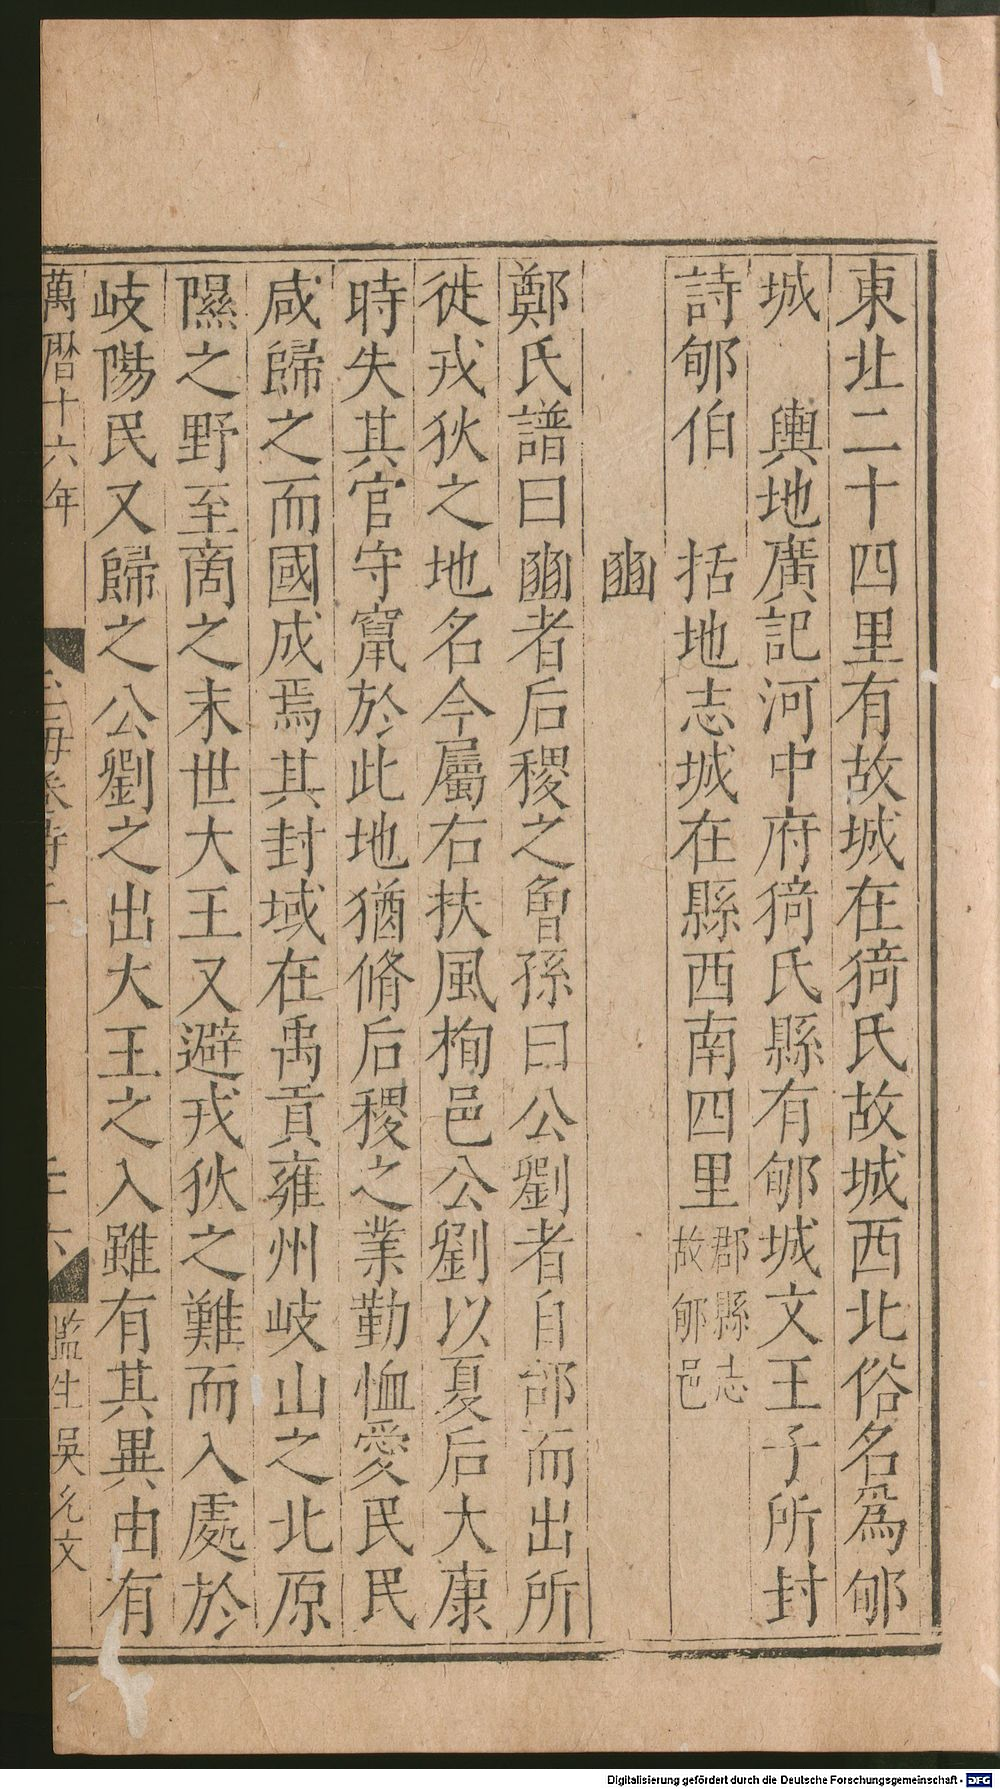 東北二十四里有故城在猗氏故城西北俗名爲郇
城　輿地廣記河中府猗氏縣有郇城文王子所封
詩郇伯　括地志城在縣西南四里郡縣志故郇邑
豳
鄭氏譜曰豳者后稷之曾孫曰公劉者自邰而出所
徙戎狄之地名今屬右扶風栒邑公劉以夏后大康
時失其官守竄於此地猶脩后稷之業勤恤愛民民
咸歸之而國成焉其封域在禹貢雍州岐山之北原
隰之野至商之末世大王又避戎狄之難而入處於
岐陽民又歸之公劉之出大王之入雖有其異由有
萬曆十六年
監生吳允文
Digitalisierung gefördert durch die Deutsche Forschungsgemeinschaft - DFG